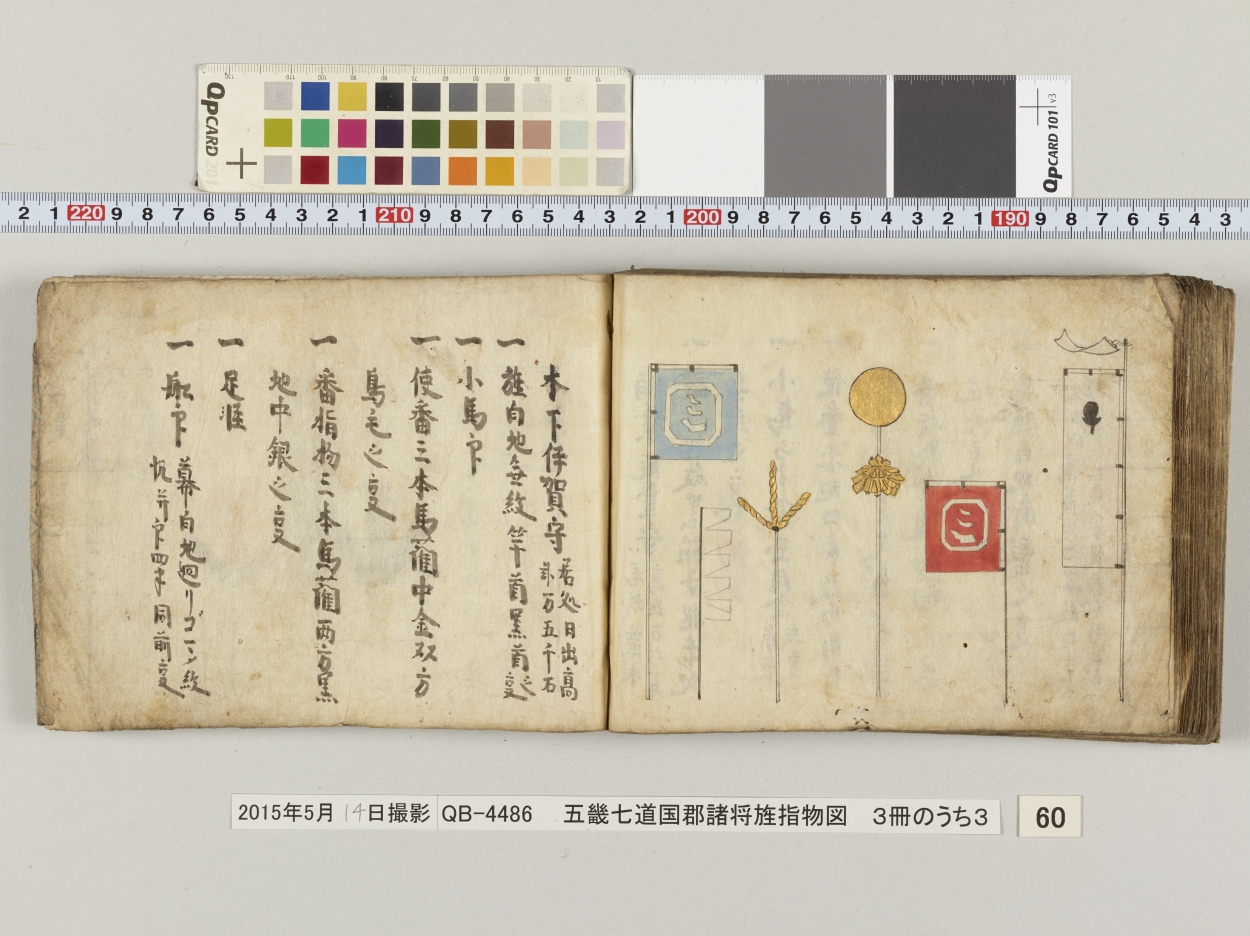 QPCARD 201
QPCARD 101 v3
2 1 220 9 8 7 6 5 4 3 2 1 210 9 8 7 6 5 4 3 2 1 200 9 8 7 6 5 4 3 2 1 190 9 8 7 6 5 4 3
木下伊賀守
居処日出高
弐万五千石
一 旌白地無紋竿首黒首之
一 小馬印
一 使番三本馬藺中金双方
鳥毛之
一 番指物三本馬藺両方黒
地中銀之
一 足軽
一 船印
幕白地廻リゴ
同前
2015年5月14日撮影
QB-4486 五畿七道国郡諸将旌指物図 3冊のうち3
60